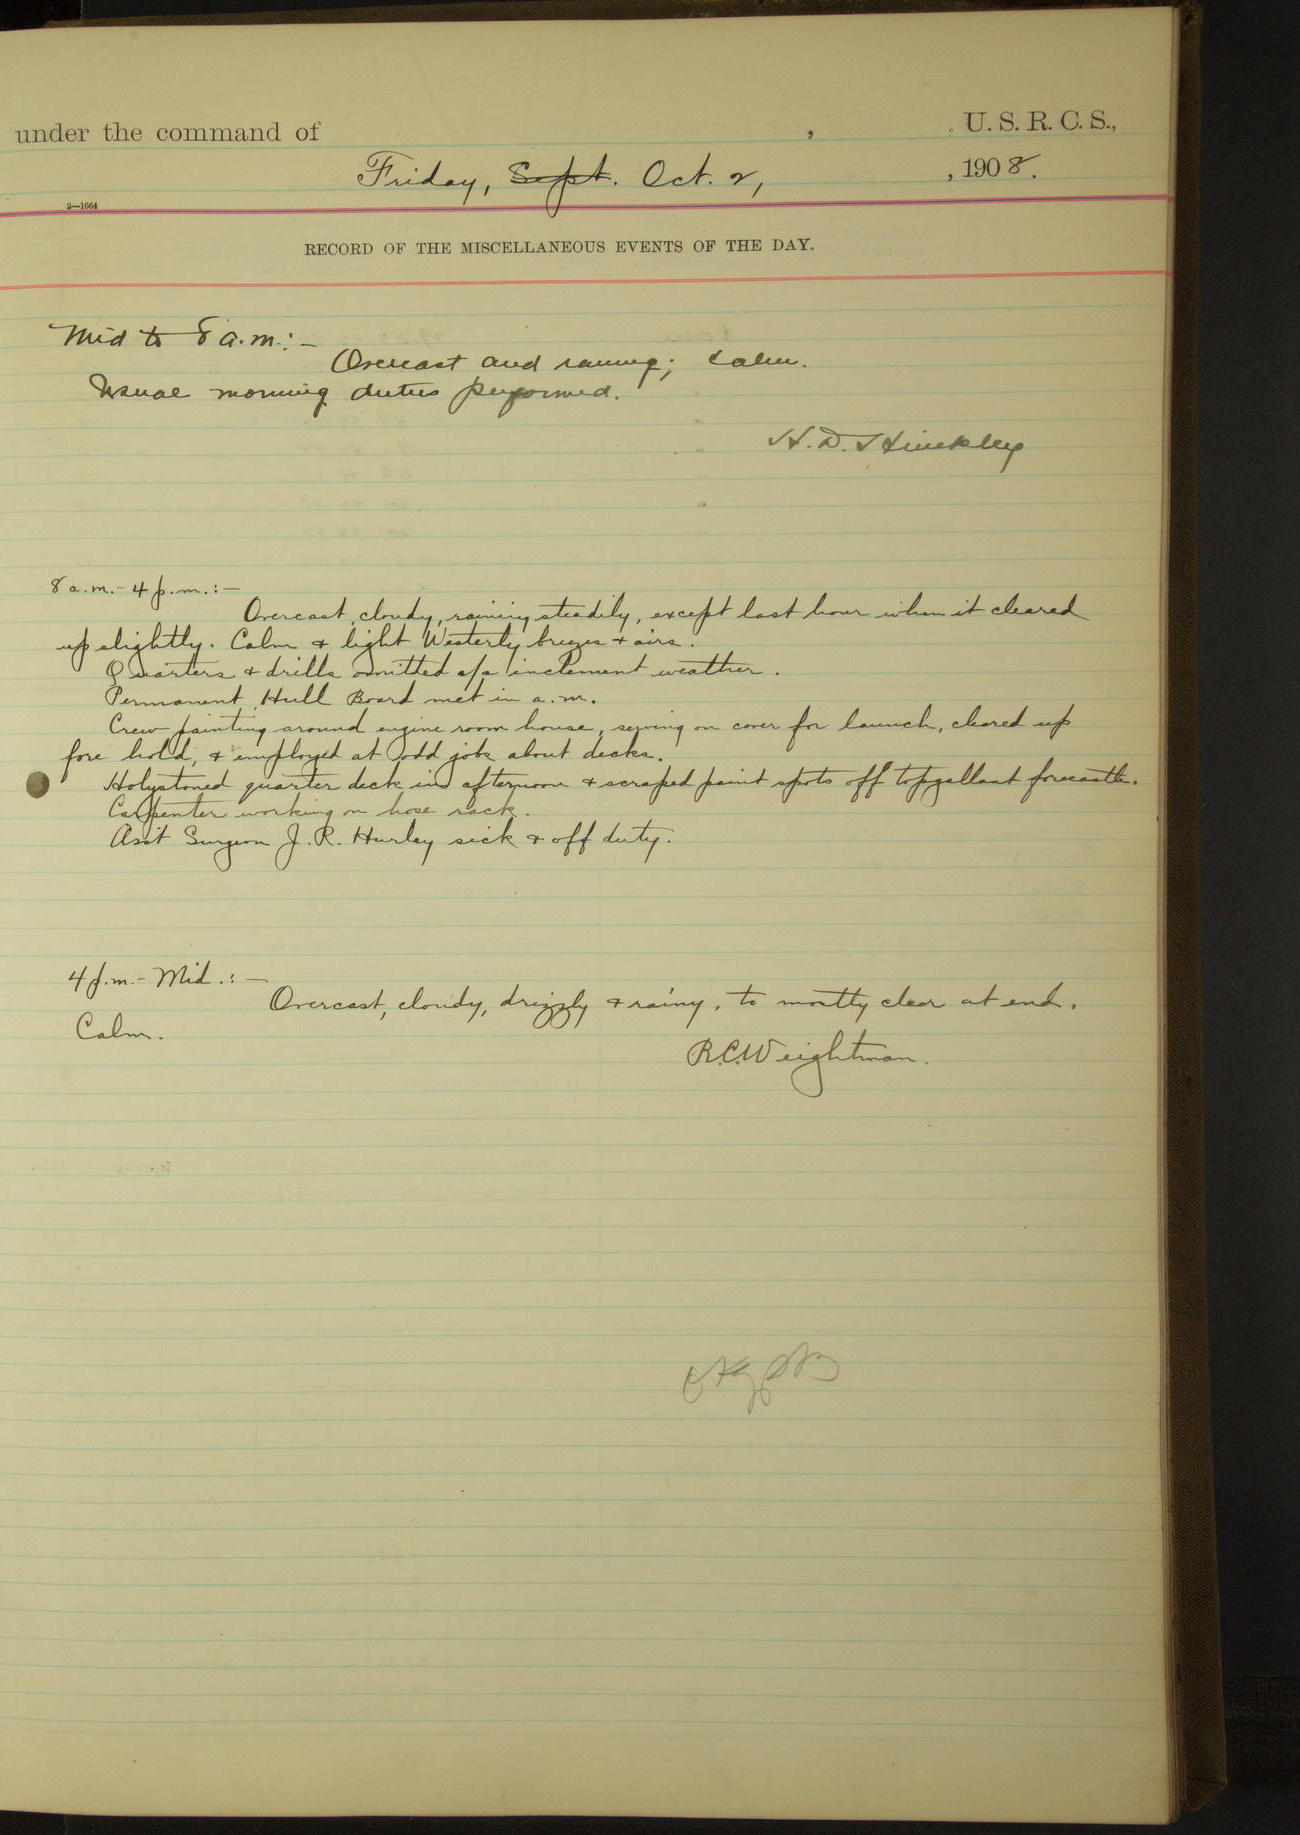 under the command of , U. S. R. C. S.,
Friday, Sept. Oct. 2, , 1908.
2—1664
RECORD OF THE MISCELLANEOUS EVENTS OF THE DAY.
Mid to 8 a.m.:-
Overcast and raining; calm.
Usual morning duties performed.
H. D. Hinckley
8 a.m. - 4 p.m.:-
Overcast, cloudy, raining steadily, except last hour when it cleared
up slightly. Calm & light Westerly breezes & airs.
Quarters & drills omitted a/c inclement weather.
Permanent Hull Board met in a.m.
Crew painting around engine room house, sewing on cover for launch, cleared up
fore hold, & employed at odd jobs about decks.
Holystoned quarter deck in afternoon & scraped paint spots off topgallant forecastle.
Carpenter working on hose rack.
Ass't Surgeon J. R. Hurley sick & off duty.
4 p.m. - Mid.:-
Overcast, cloudy, drizzly & rainy, to mostly clear at end.
Calm.
R.C. Weightman.